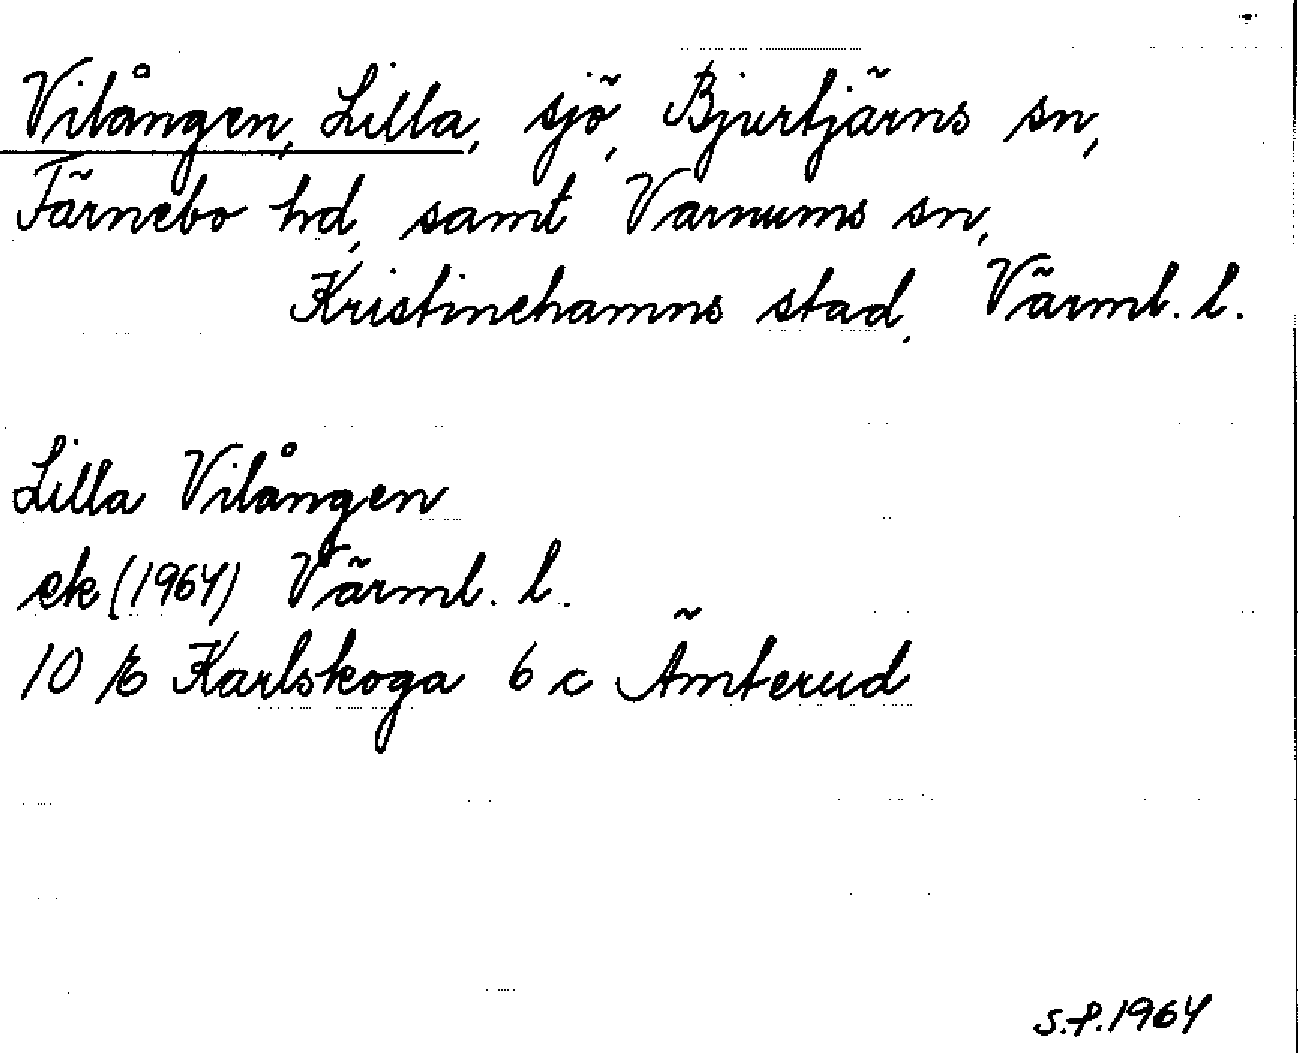 Vilången, Lilla, sjö, Bjurtjärns sn,
Färnebo hd, samt Varnums sn,
Kristinehamns stad, Värml. l.
Lilla Vilången
ek (1964) Värml. l.
10 E Karlskoga 6 c Ämterud
S.P. 1964